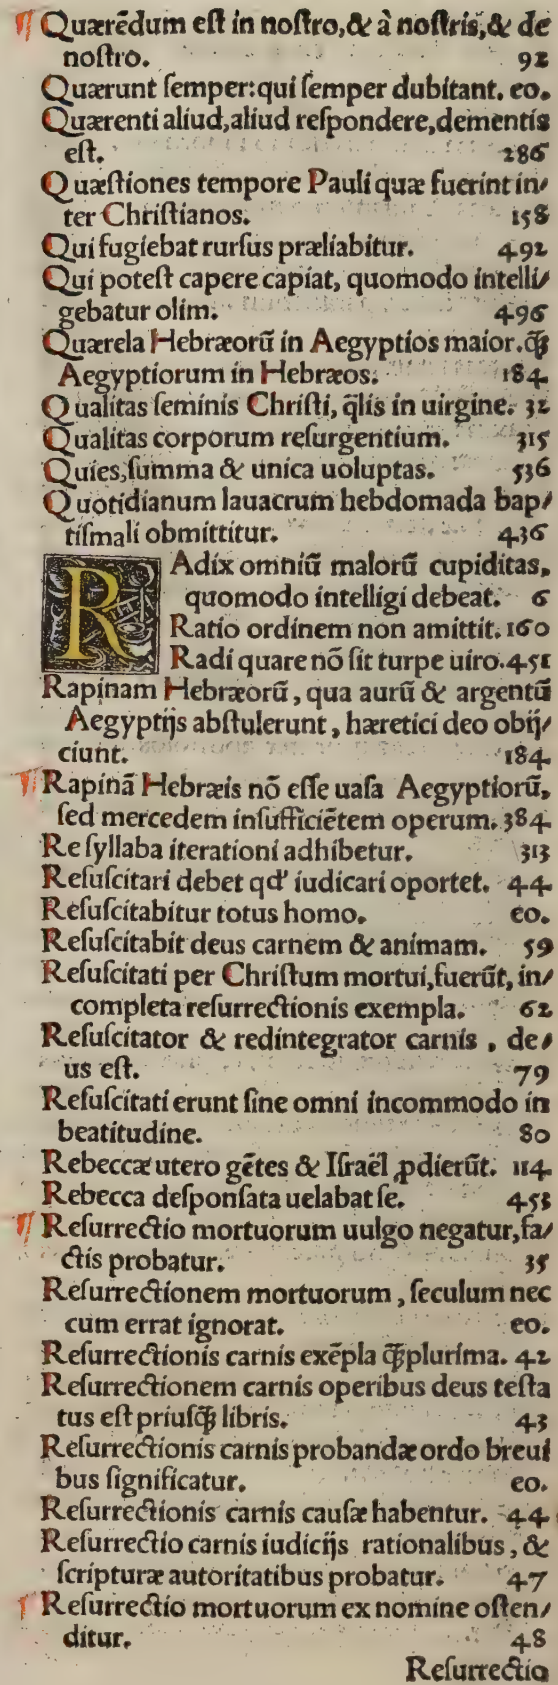 ¶ Quærẽdum eſt in noſtro, & à noſtris, & de
noſtro. 92
Quærunt ſemper: qui ſemper dubitant. eo.
Quærenti aliud, aliud reſpondere, dementis
eſt. 286
Quæſtiones tempore Pauli quæ fuerint in/
ter Chriſtianos. 158
Qui fugiebat rurſus præliabitur. 492
Qui poteſt capere capiat, quomodo intelli/
gebatur olim. 496
Quærela Hebræorũ in Aegyptios maior. ꝗ̃
Aegyptiorum in Hebræos. 184
Qualitas ſeminis Chriſti, q̃lis in uirgine. 32
Qualitas corporum reſurgentium. 315
Quies, ſumma & unica uoluptas. 536
Quotidianum lauacrum hebdomada bap/
tiſmali obmittitur. 436
RAdix omniũ malorũ cupiditas,
quomodo intelligi debeat. 6
Ratio ordinem non amittit. 160
Radi quare nõ ſit turpe uiro. 451
Rapinam Hebræorũ, qua aurũ & argentũ
Aegyptijs abſtulerunt, hæretici deo obij/
ciunt. 184
¶ Rapinã Hebræis nõ eſſe uaſa Aegyptiorũ,
ſed mercedem inſufficiẽtem operum. 384
Re ſyllaba iterationi adhibetur. 313
Reſuſcitari debet qd' iudicari oportet. 44
Reſuſcitabitur totus homo. eo.
Reſuſcitabit deus carnem & animam. 59
Reſuſcitati per Chriſtum mortui, fuerũt, in/
completa reſurrectionis exempla. 62
Reſuſcitator & redintegrator carnis, de/
us eſt. 79
Reſuſcitati erunt ſine omni incommodo in
beatitudine. 80
Rebeccæ utero gẽtes & Iſraël ꝓdierũt. 114
Rebecca deſponſata uelabat ſe. 453
¶ Reſurrectio mortuorum uulgo negatur, fa/
ctis probatur. 35
Reſurrectionem mortuorum, ſeculum nec
cum errat ignorat. eo.
Reſurrectionis carnis exẽpla ꝗ̃plurima. 42
Reſurrectionem carnis operibus deus teſta
tus eſt priuſꝗ̃ libris. 43
Reſurrectionis carnis probandæ ordo breui
bus ſignificatur. eo.
Reſurrectionis carnis cauſæ habentur. 44
Reſurrectio carnis iudicijs rationalibus, &
ſcripturæ autoritatibus probatur. 47
¶ Reſurrectio mortuorum ex nomine oſten/
ditur. 48
Reſurrectio